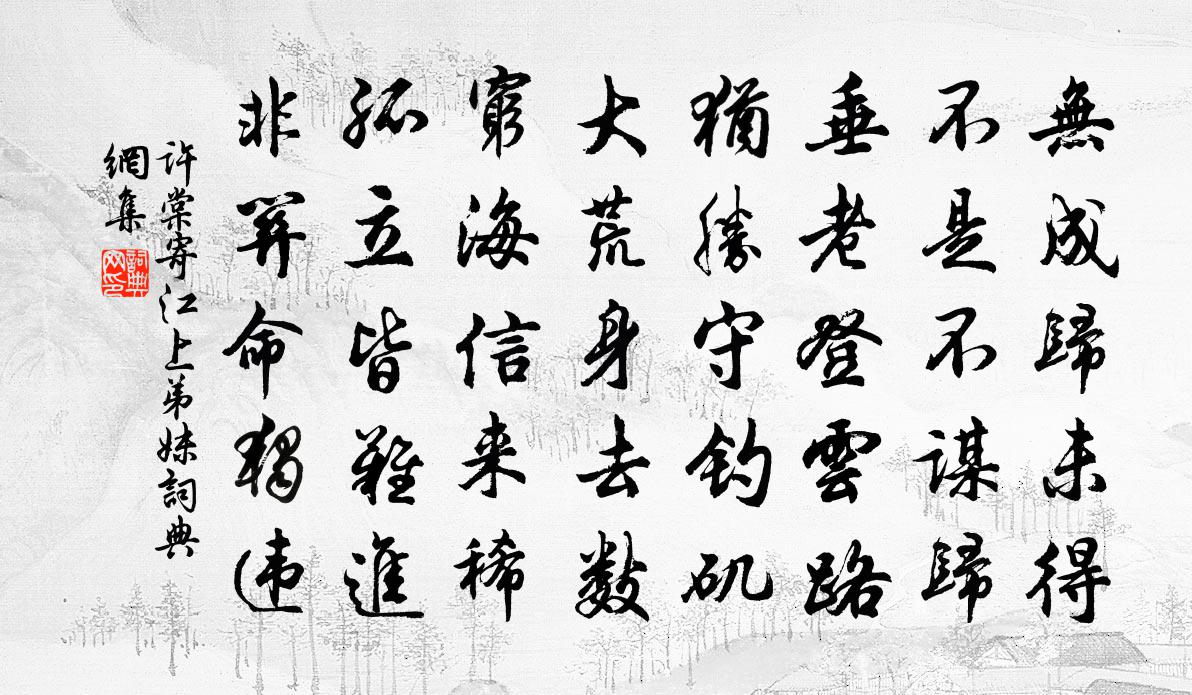 無成歸未得
不是不謀歸
垂老登雲路
猶勝守釣磯
大荒身去數
窮海信来稀
孤立皆難進
非關命獨違
許棠寄江上弟妹詞典
網集
詞典
网印